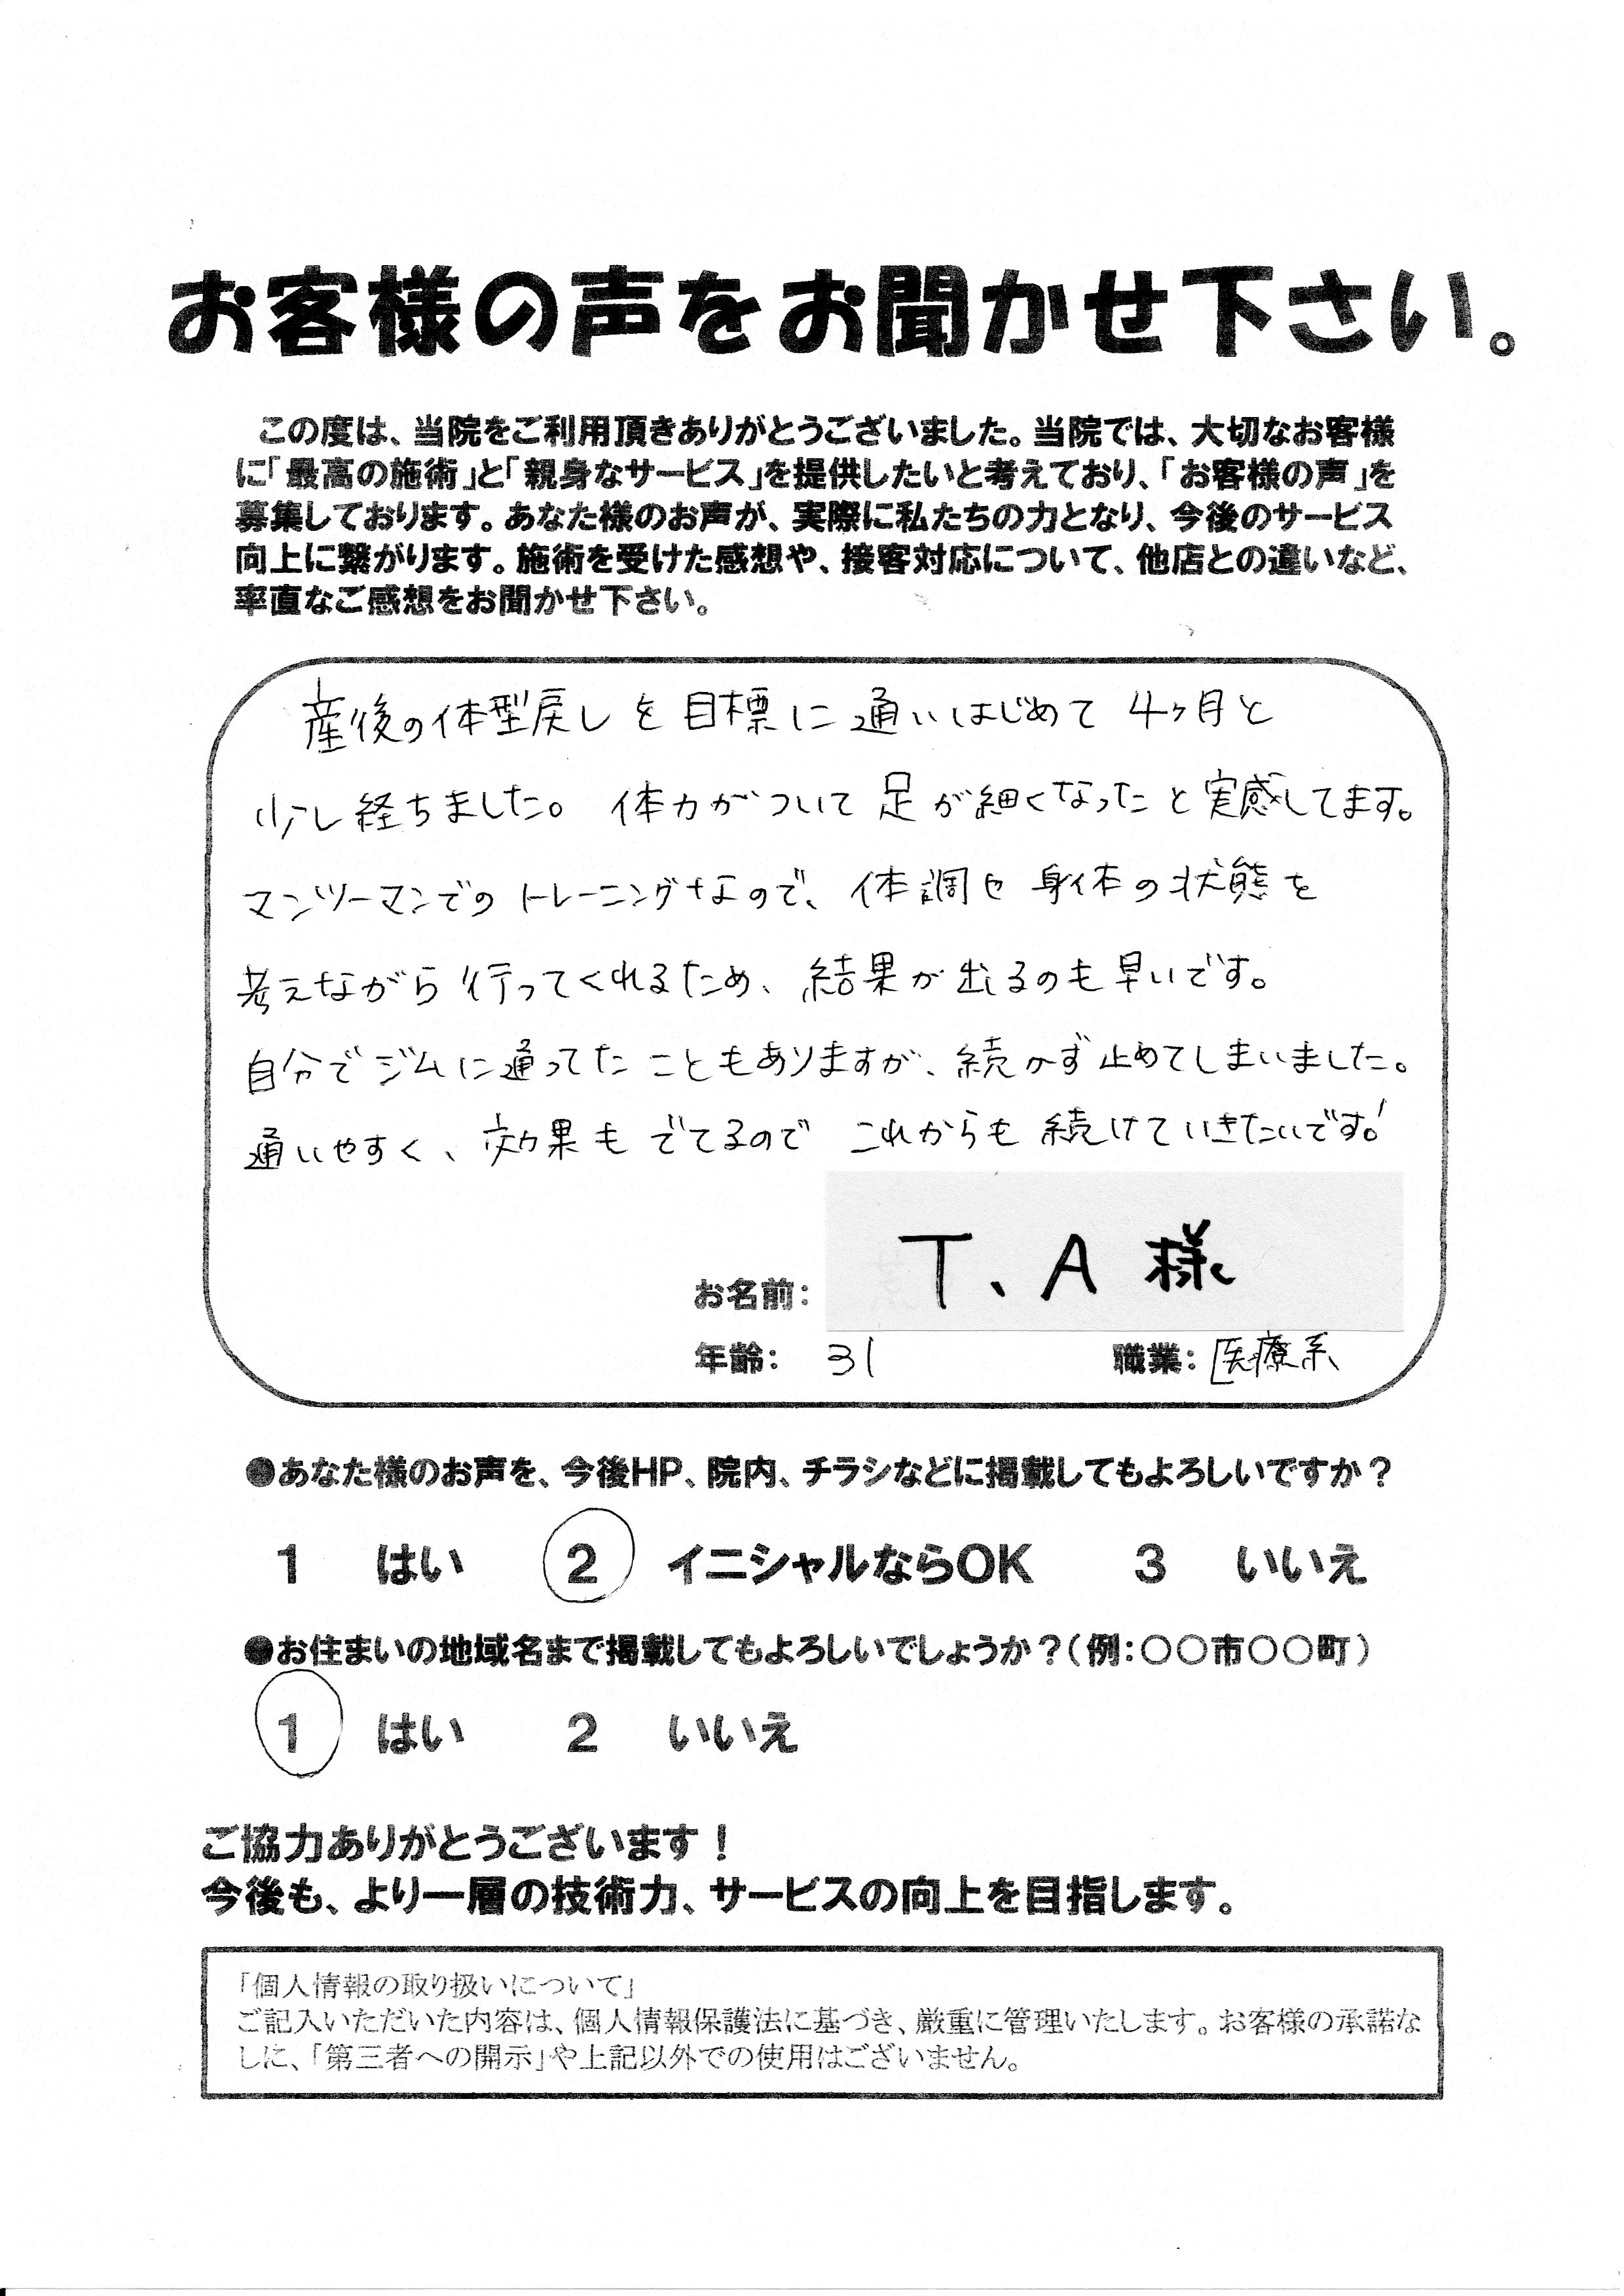 お客様の声をお聞かせ下さい。
この度は、当院をご利用頂きありがとうございました。当院では、大切なお客様
に「最高の施術」と「親身なサービス」を提供したいと考えており、「お客様の声」を
募集しております。あなた様のお声が、実際に私たちの力となり、今後のサービス
向上に繋がります。施術を受けた感想や、接客対応について、他店との違いなど、
率直なご感想をお聞かせ下さい。
産後の体型戻しを目標に通いはじめて 4ヶ月と
少し経ちました。体力がついて足が細くなったと実感してます。
マンツーマンでのトレーニングなので、体調や身体の状態を
考えながら行ってくれるため、結果が出るのも早いです。
自分でジムに通ってたこともありますが、続かず止めてしまいました。
通いやすく、効果もでてるのでこれからも続けていきたいです!
お名前: T、A 様
年齢: 31 職業: 医療系
●あなた様のお声を、今後HP、院内、チラシなどに掲載してもよろしいですか?
1 はい 2 イニシャルならOK 3 いいえ
●お住まいの地域名まで掲載してもよろしいでしょうか?(例:〇〇市〇〇町)
1 はい 2 いいえ
ご協力ありがとうございます!
今後も、より一層の技術力、サービスの向上を目指します。
「個人情報の取り扱いについて」
ご記入いただいた内容は、個人情報保護法に基づき、厳重に管理いたします。お客様の承諾な
しに、「第三者への開示」や上記以外での使用はございません。